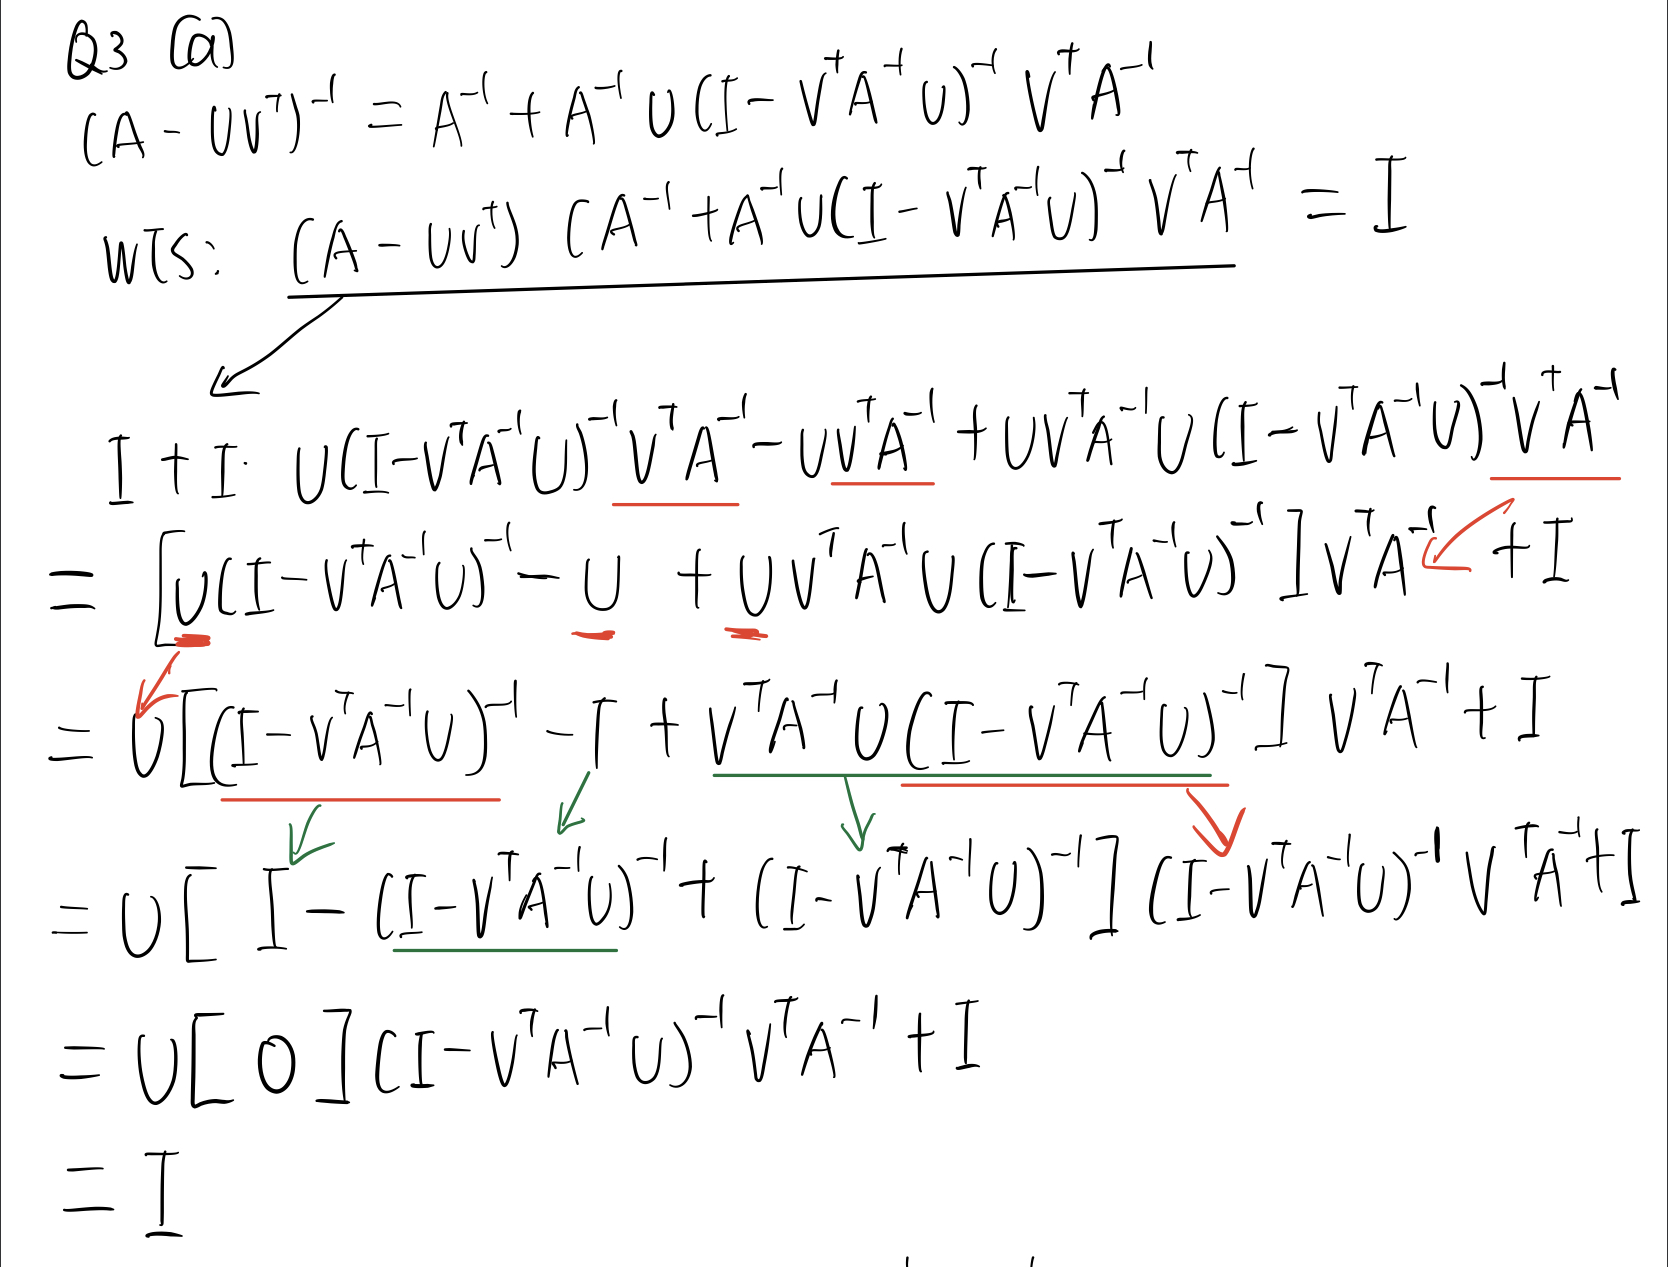 Q3 (a)
(A - UVᵀ)⁻¹ = A⁻¹ + A⁻¹ U (I - VᵀA⁻¹U)⁻¹ VᵀA⁻¹
WTS: (A - UVᵀ) (A⁻¹ + A⁻¹U(I - VᵀA⁻¹U)⁻¹ VᵀA⁻¹ = I
I + I · U(I - VᵀA⁻¹U)⁻¹VᵀA⁻¹ - UVᵀA⁻¹ + UVᵀA⁻¹U(I - VᵀA⁻¹U)⁻¹VᵀA⁻¹
= [U(I - VᵀA⁻¹U)⁻¹ - U + UVᵀA⁻¹U(I - VᵀA⁻¹U)⁻¹] VᵀA⁻¹ + I
= U[(I - VᵀA⁻¹U)⁻¹ - I + VᵀA⁻¹U(I - VᵀA⁻¹U)⁻¹] VᵀA⁻¹ + I
= U[ I - (I - VᵀA⁻¹U)⁻¹ + (I - VᵀA⁻¹U)⁻¹] (I - VᵀA⁻¹U)⁻¹ VᵀA⁻¹ + I
= U[ 0 ] (I - VᵀA⁻¹U)⁻¹ VᵀA⁻¹ + I
= I